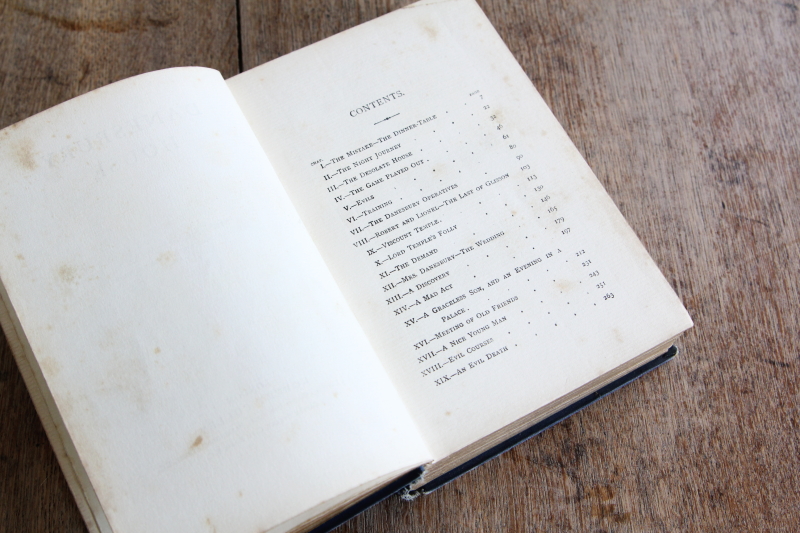 CONTENTS.
CHAP. PAGE
I.—THE MISTAKE—THE DINNER-TABLE . . 7
II.—THE NIGHT JOURNEY . . . 22
III.—THE DESOLATE HOUSE . . . 32
IV.—THE GAME PLAYED OUT . . . 46
V.—EVILS . . . 62
VI.—TRAINING . . . 80
VII.—THE DANESBURY OPERATIVES . . . 90
VIII.—ROBERT AND LIONEL—THE LAST OF GLISSON 103
IX.—VISCOUNT TEMPLE. . . . 113
X.—LORD TEMPLE'S FOLLY . . . 130
XI.—THE DEMAND . . . 146
XII.—MRS. DANESBURY—THE WEDDING . . 165
XIII.—A DISCOVERY . . . 179
XIV.—A MAD ACT . . . 197
XV.—A GRACELESS SON, AND AN EVENING IN A
PALACE. . . . 212
XVI.—MEETING OF OLD FRIENDS . . . 231
XVII.—A NICE YOUNG MAN . . . 243
XVIII.—EVIL COURSES . . . 251
XIX.—AN EVIL DEATH . . . 263